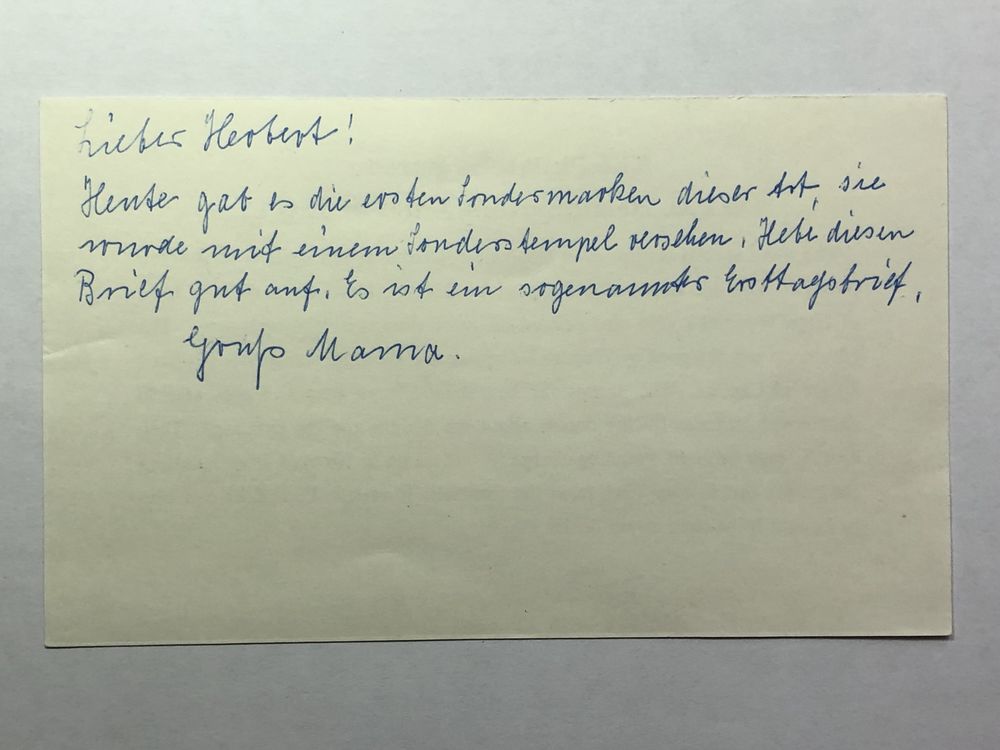 Lieber Herbert!
Heute gab es die ersten Sondermarken dieser Art, sie
wurde mit einem Sonderstempel versehen. Hebe diesen
Brief gut auf. Es ist ein sogenannter Ersttagsbrief,
Gruß Mama.